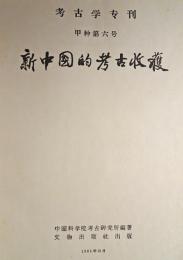 考古学专刊
甲种第六号
新中國的考古收獲
中国科学院考古研究所編著
文物出版社出版